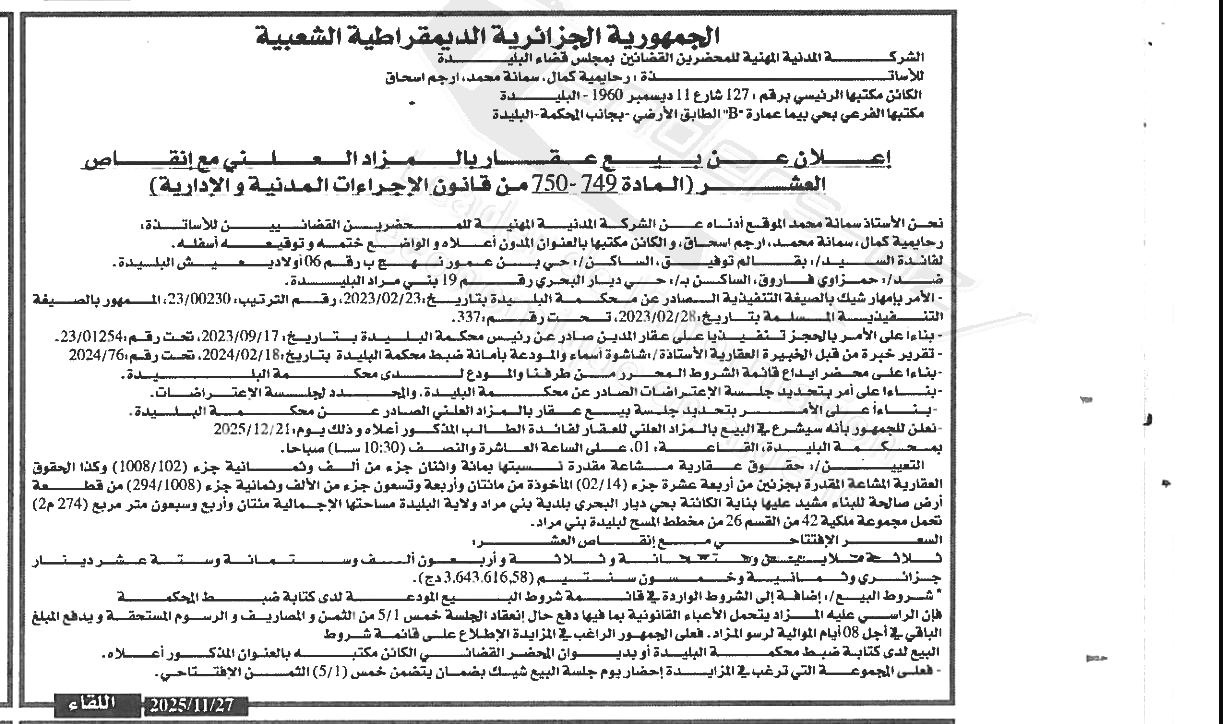 الجمهورية الجزائرية الديمقراطية الشعبية
الشركة المدنية المهنية للمحضرين القضائين بمجلس قضاء البليدة
للأساتذة : رحايمية كمال، سمانة محمد، ارجم اسحاق
الكائن مكتبها الرئيسي برقم : 127 شارع 11 ديسمبر 1960 - البليدة
مكتبها الفرعي بحي بيما عمارة "B" الطابق الأرضي -بجانب المحكمة-البليدة
إعلان عن بيع عقار بالمزاد العلني مع إنقاص
العشر (المادة 749 -750 من قانون الإجراءات المدنية و الإدارية)
نحن الأستاذ سمانة محمد الموقع أدناه عن الشركة المدنية المهنية للمحضرين القضائيين للأساتذة:
رحايمية كمال، سمانة محمد، ارجم اسحاق، و الكائن مكتبها بالعنوان المدون أعلاه و الواضع ختمه و توقيعه أسفله.
لفائدة السيد/: بقالم توفيق، الساكن/: حي بن عمور نهج ب رقم 06 أولاد يعيش البليدة.
ضد/: حمزاوي فاروق، الساكن بـ/: حي ديار البحري رقم 19 بني مراد البليدة.
- الأمر بإمهار شيك بالصيغة التنفيذية الصادر عن محكمة البليدة بتاريخ: 2023/02/23، رقم الترتيب: 23/00230، الممهور بالصيغة
التنفيذية المسلمة بتاريخ: 2023/02/28، تحت رقم: 337.
- بناءا على الأمر بالحجز تنفيذيا على عقار المدين صادر عن رئيس محكمة البليدة بتاريخ: 2023/09/17، تحت رقم: 23/01254.
- تقرير خبرة من قبل الخبيرة العقارية الأستاذة/: شاشوة أسماء والمودعة بأمانة ضبط محكمة البليدة بتاريخ: 2024/02/18، تحت رقم: 2024/76
-بناءا على محضر ايداع قائمة الشروط المحرر من طرفنا والمودع لدى محكمة البليدة.
-بناءا على أمر بتحديد جلسة الإعتراضات الصادر عن محكمة البليدة، والمحدد لجلسة الإعتراضات.
-بناءا على الأمر بتحديد جلسة بيع عقار بالمزاد العلني الصادر عن محكمة البليدة.
-نعلن للجمهور بأنه سيشرع في البيع بالمزاد العلني للعقار لفائدة الطالب المذكور أعلاه و ذلك يوم: 2025/12/21
بمحكمة البليدة، القاعة: 01، على الساعة العاشرة والنصف (10:30 سا) صباحا.
التعيين/: حقوق عقارية مشاعة مقدرة نسبتها بمائة واثنان جزء من ألف وثمانية جزء (1008/102) وكذا الحقوق
العقارية المشاعة المقدرة بجزئين من أربعة عشرة جزء (02/14) المأخوذة من مائتان وأربعة وتسعون جزء من الألف وثمانية جزء (294/1008) من قطعة
أرض صالحة للبناء مشيد عليها بناية الكائنة بحي ديار البحري بلدية بني مراد ولاية البليدة مساحتها الإجمالية مئتان وأربع وسبعون متر مربع (274 م2)
تحمل مجموعة ملكية 42 من القسم 26 من مخطط المسح لبليدة بني مراد.
السعر الإفتتاحي مع إنقاص العشر:
ثلاثة ملايين وستمائة و ثلاثة و أربعون ألف وستمائة وستة عشر دينار
جزائري وثمانية وخمسون سنتيم (3.643.616,58 دج).
* شروط البيع/: إضافة إلى الشروط الواردة في قائمة شروط البيع المودعة لدى كتابة ضبط المحكمة
فإن الراسي عليه المزاد يتحمل الأعباء القانونية بما فيها دفع حال إنعقاد الجلسة خمس 5/1 من الثمن و المصاريف و الرسوم المستحقة و يدفع المبلغ
الباقي في أجل 08 أيام الموالية لرسو المزاد. فعلى الجمهور الراغب في المزايدة الإطلاع على قائمة شروط
البيع لدى كتابة ضبط محكمة البليدة أو بديوان المحضر القضائي الكائن مكتبه بالعنوان المذكور أعلاه.
- فعلى المجموعة التي ترغب في المزايدة إحضار يوم جلسة البيع شيك بضمان يتضمن خمس (5/1) الثمن الإفتتاحي.
اللقاء 2025/11/27